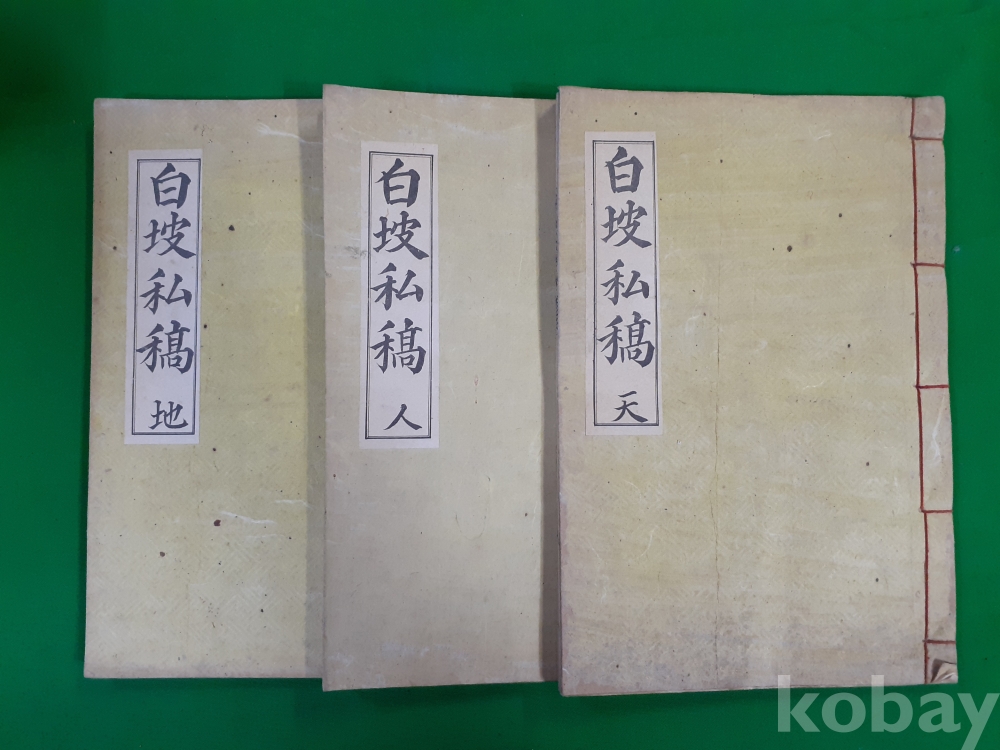 白坡私稿 地
白坡私稿 人
白坡私稿 天
kobay